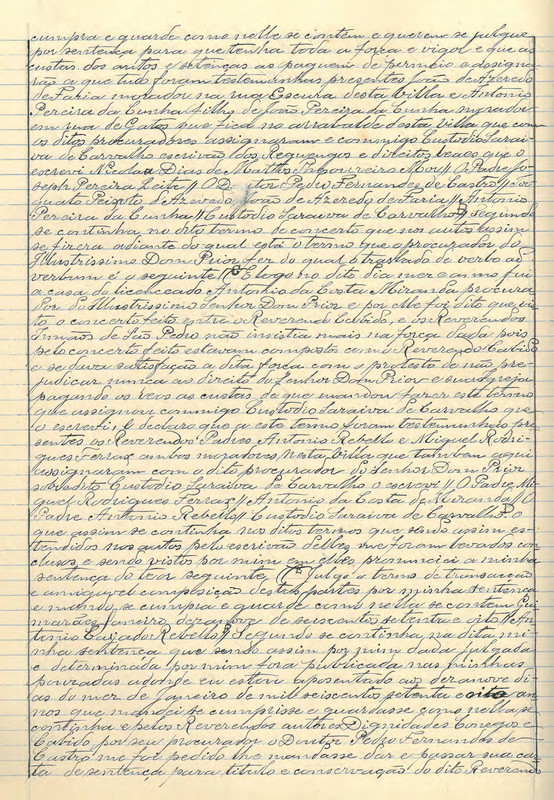 cumpra e guarde como nelle se contem e querem se julgue
por sentença para que tenha toda a força e vigor e que as
custas dos autos e sentenças as paguem de permeio e assigna-
rão a que tudo foram testemunhas presentes João de Azeredo
de Faria morador na rua Escura desta Villa e Antonio
Pereira da Cunha filho de João Pereira da Cunha morador
em rua de Gatos que fica no arrabalde desta Villa que com
os ditos procuradores assignaram e commigo Custodio Sarai-
va de Carvalho escrivão dos Reguengos e direitos reaes que o
escrevi Nicolau Dias de Mattos Thesoureiro Mor // O Padre Jo-
seph Pereira Leite // O Doutor Pedro Fernandes de Castro //
Peixoto de Azevedo João de Azeredo de Faria // Antonio
Pereira da Cunha // Custodio Saraiva de Carvalho // Segundo
se continha no dito termo de concerto que nos autos assim
se fizera adiante do qual está o termo que o procurador do
Illustrissimo Dom Prior fez do qual o traslado de verbo ad
verbum é o seguinte // E logo no dito dia mez e anno fui
a casa do licenceado Antonio da Costa Miranda procura-
dor do Illustrissimo Senhor Dom Prior e por elle foi dito que vis-
to o concerto feito entre o Reverendo Cabido, e os Reverendos
Irmãos de São Pedro não insistia mais na força dada pois
pelo concerto feito estavam compostos com o Reverendo Cabido
e se dava satisfação a dita força com o protesto de não pre-
judicar nunca ao direito do Senhor Dom Prior e sua Igreja
pagando os reus as custas de que mandou fazer este termo
que assignou commigo Custodio Saraiva de Carvalho que
o escrevi, E declaro que a este termo foram testemunhas pre-
sentes os Reverendos Padres Antonio Rebello e Miguel Rodri-
gues Ferraz ambos moradores nesta Villa que tambem aqui
assignaram com o dito procurador do Senhor Dom Prior
sobredito Custodio Saraiva de Carvalho o escrevi // O Padre Mi-
guel Rodrigues Ferraz // Antonio da Costa de Miranda // O
Padre Antonio Rebello // Custodio Saraiva de Carvalho // O
que assim se continha nos ditos termos que sendo assim es-
tendidos nos autos pelo escrivão delles me foram levados con-
clusos e sendo vistos por mim em elles pronunciei a minha
sentença do teor seguinte // Julgo o termo de transacção
e amigavel composição destas partes por minha sentença
e mando se cumpra e guarde como nella se contem Gui-
marães Janeiro dezanove de seiscentos setenta e oito // An-
tonio Caiado Rebello // Segundo se continha na dita mi-
nha sentença que sendo assim por mim dada julgada
e determinada por mim fora publicada nas minhas
pouzadas adonde eu estava aposentado aos dezanove di-
as do mez de Janeiro de mil seiscentos setenta e oito an-
nos que mandei se cumprisse e guardasse como nella se
continha e pelos Reverendos autores Dignidades Conegos e
Cabido por seu procurador o Doutor Pedro Fernandes de
Castro me foi pedido lhe mandasse dar e passar sua car-
ta de sentença para titulo e conservação do dito Reverendo